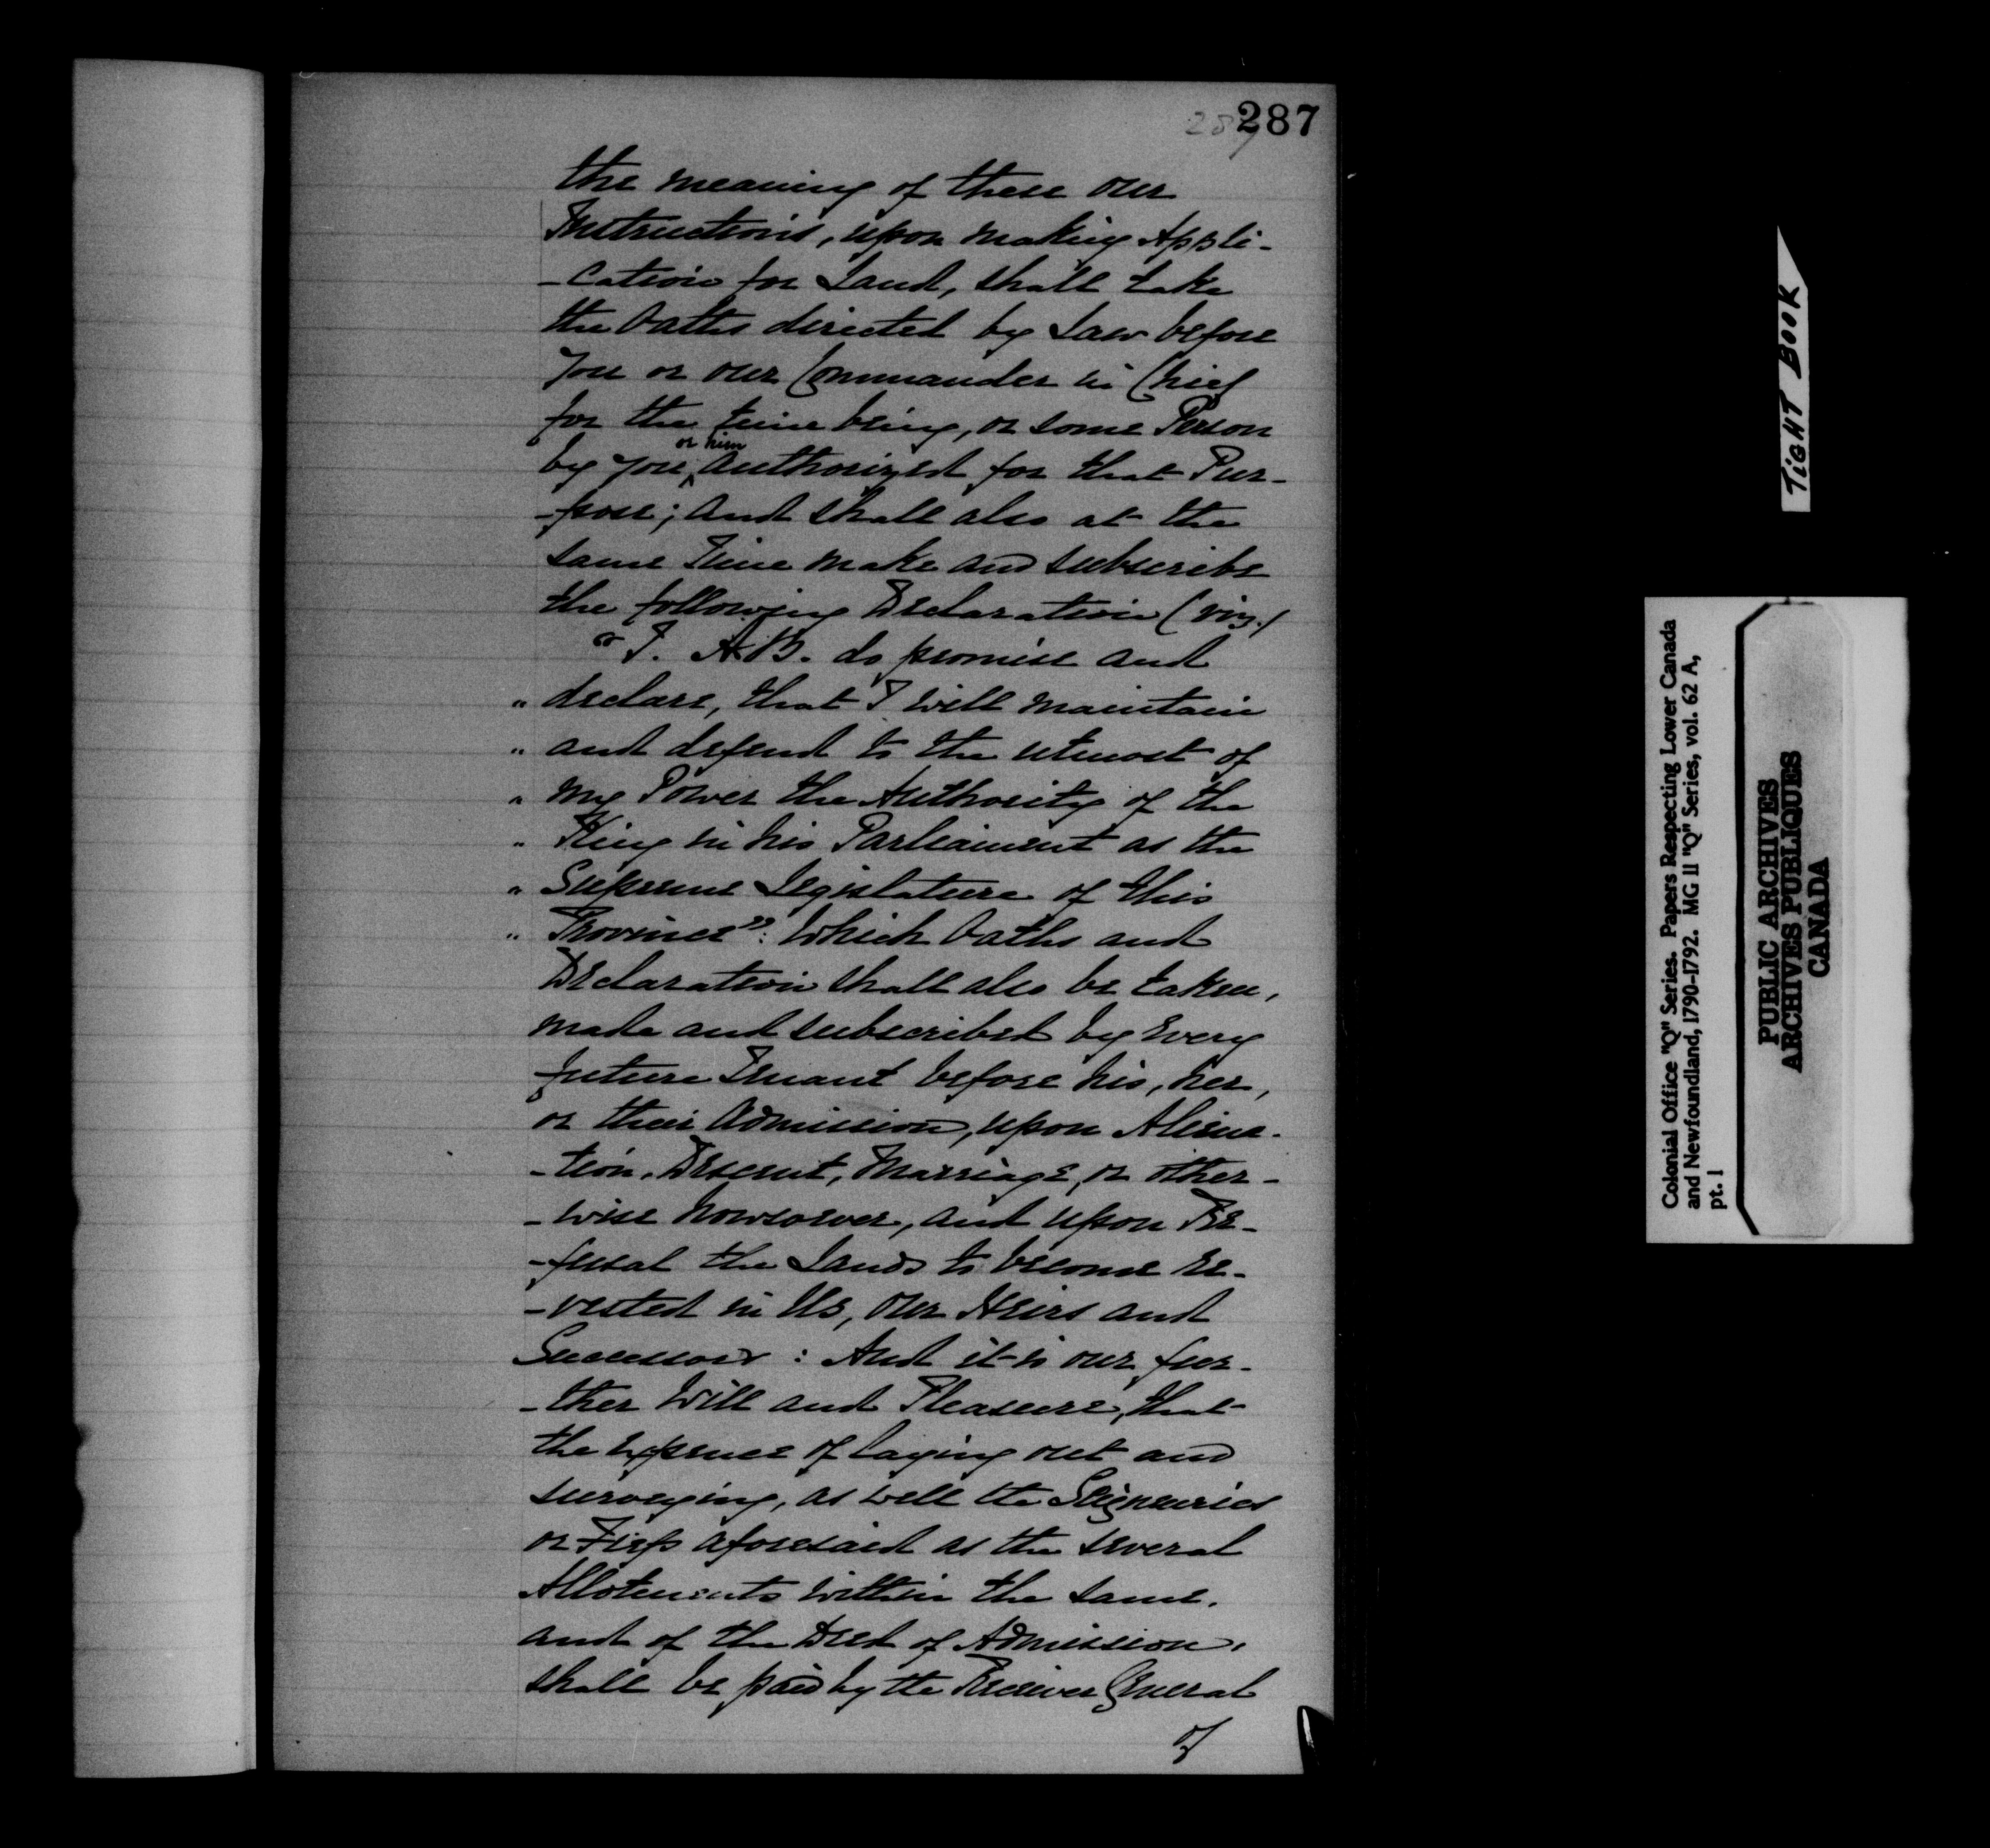 287
287
the meaning of these our
Instructions, upon making Appli-
-cation for Land, shall take
the Oaths directed by Law before
you or our Commander in Chief
for the time being, or some Person
or him
by you, authorized for that Pur-
-pose; and shall also at the
same Time make and subscribe
the following Declaration (viz.)
"I. A.B. do promise and
" declare, that I will maintain
" and defend to the utmost of
" my Power the Authority of the
" King in his Parliament as the
" Supreme Legislature of this
" Province": Which Oaths and
Declaration shall also be taken,
made and subscribed by every
future Tenant before his, her,
or their Admission, upon Aliena-
-tion, Descent, Marriage, or other-
-wise howsoever, and upon Re-
-fusal the Lands to become re-
-vested in Us, Our Heirs and
Successors: And it is our fur-
-ther Will and Pleasure, that
the expence of laying out and
surveying, as well the Seigneuries
or Fiefs aforesaid as the several
Allotments within the same,
and of the Deed of Admission,
shall be paid by the Receiver General
of
TIGHT BOOK
Colonial Office "Q" Series. Papers Respecting Lower Canada
and Newfoundland, 1790-1792. MG 11 "Q" Series, vol. 62 A,
pt. 1
PUBLIC ARCHIVES
ARCHIVES PUBLIQUES
CANADA